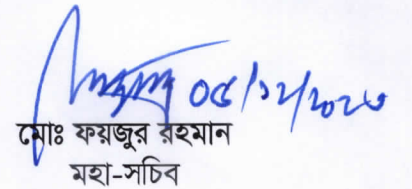 ০৫/১২/২০২৩
মোঃ ফয়জুর রহমান
মহা-সচিব